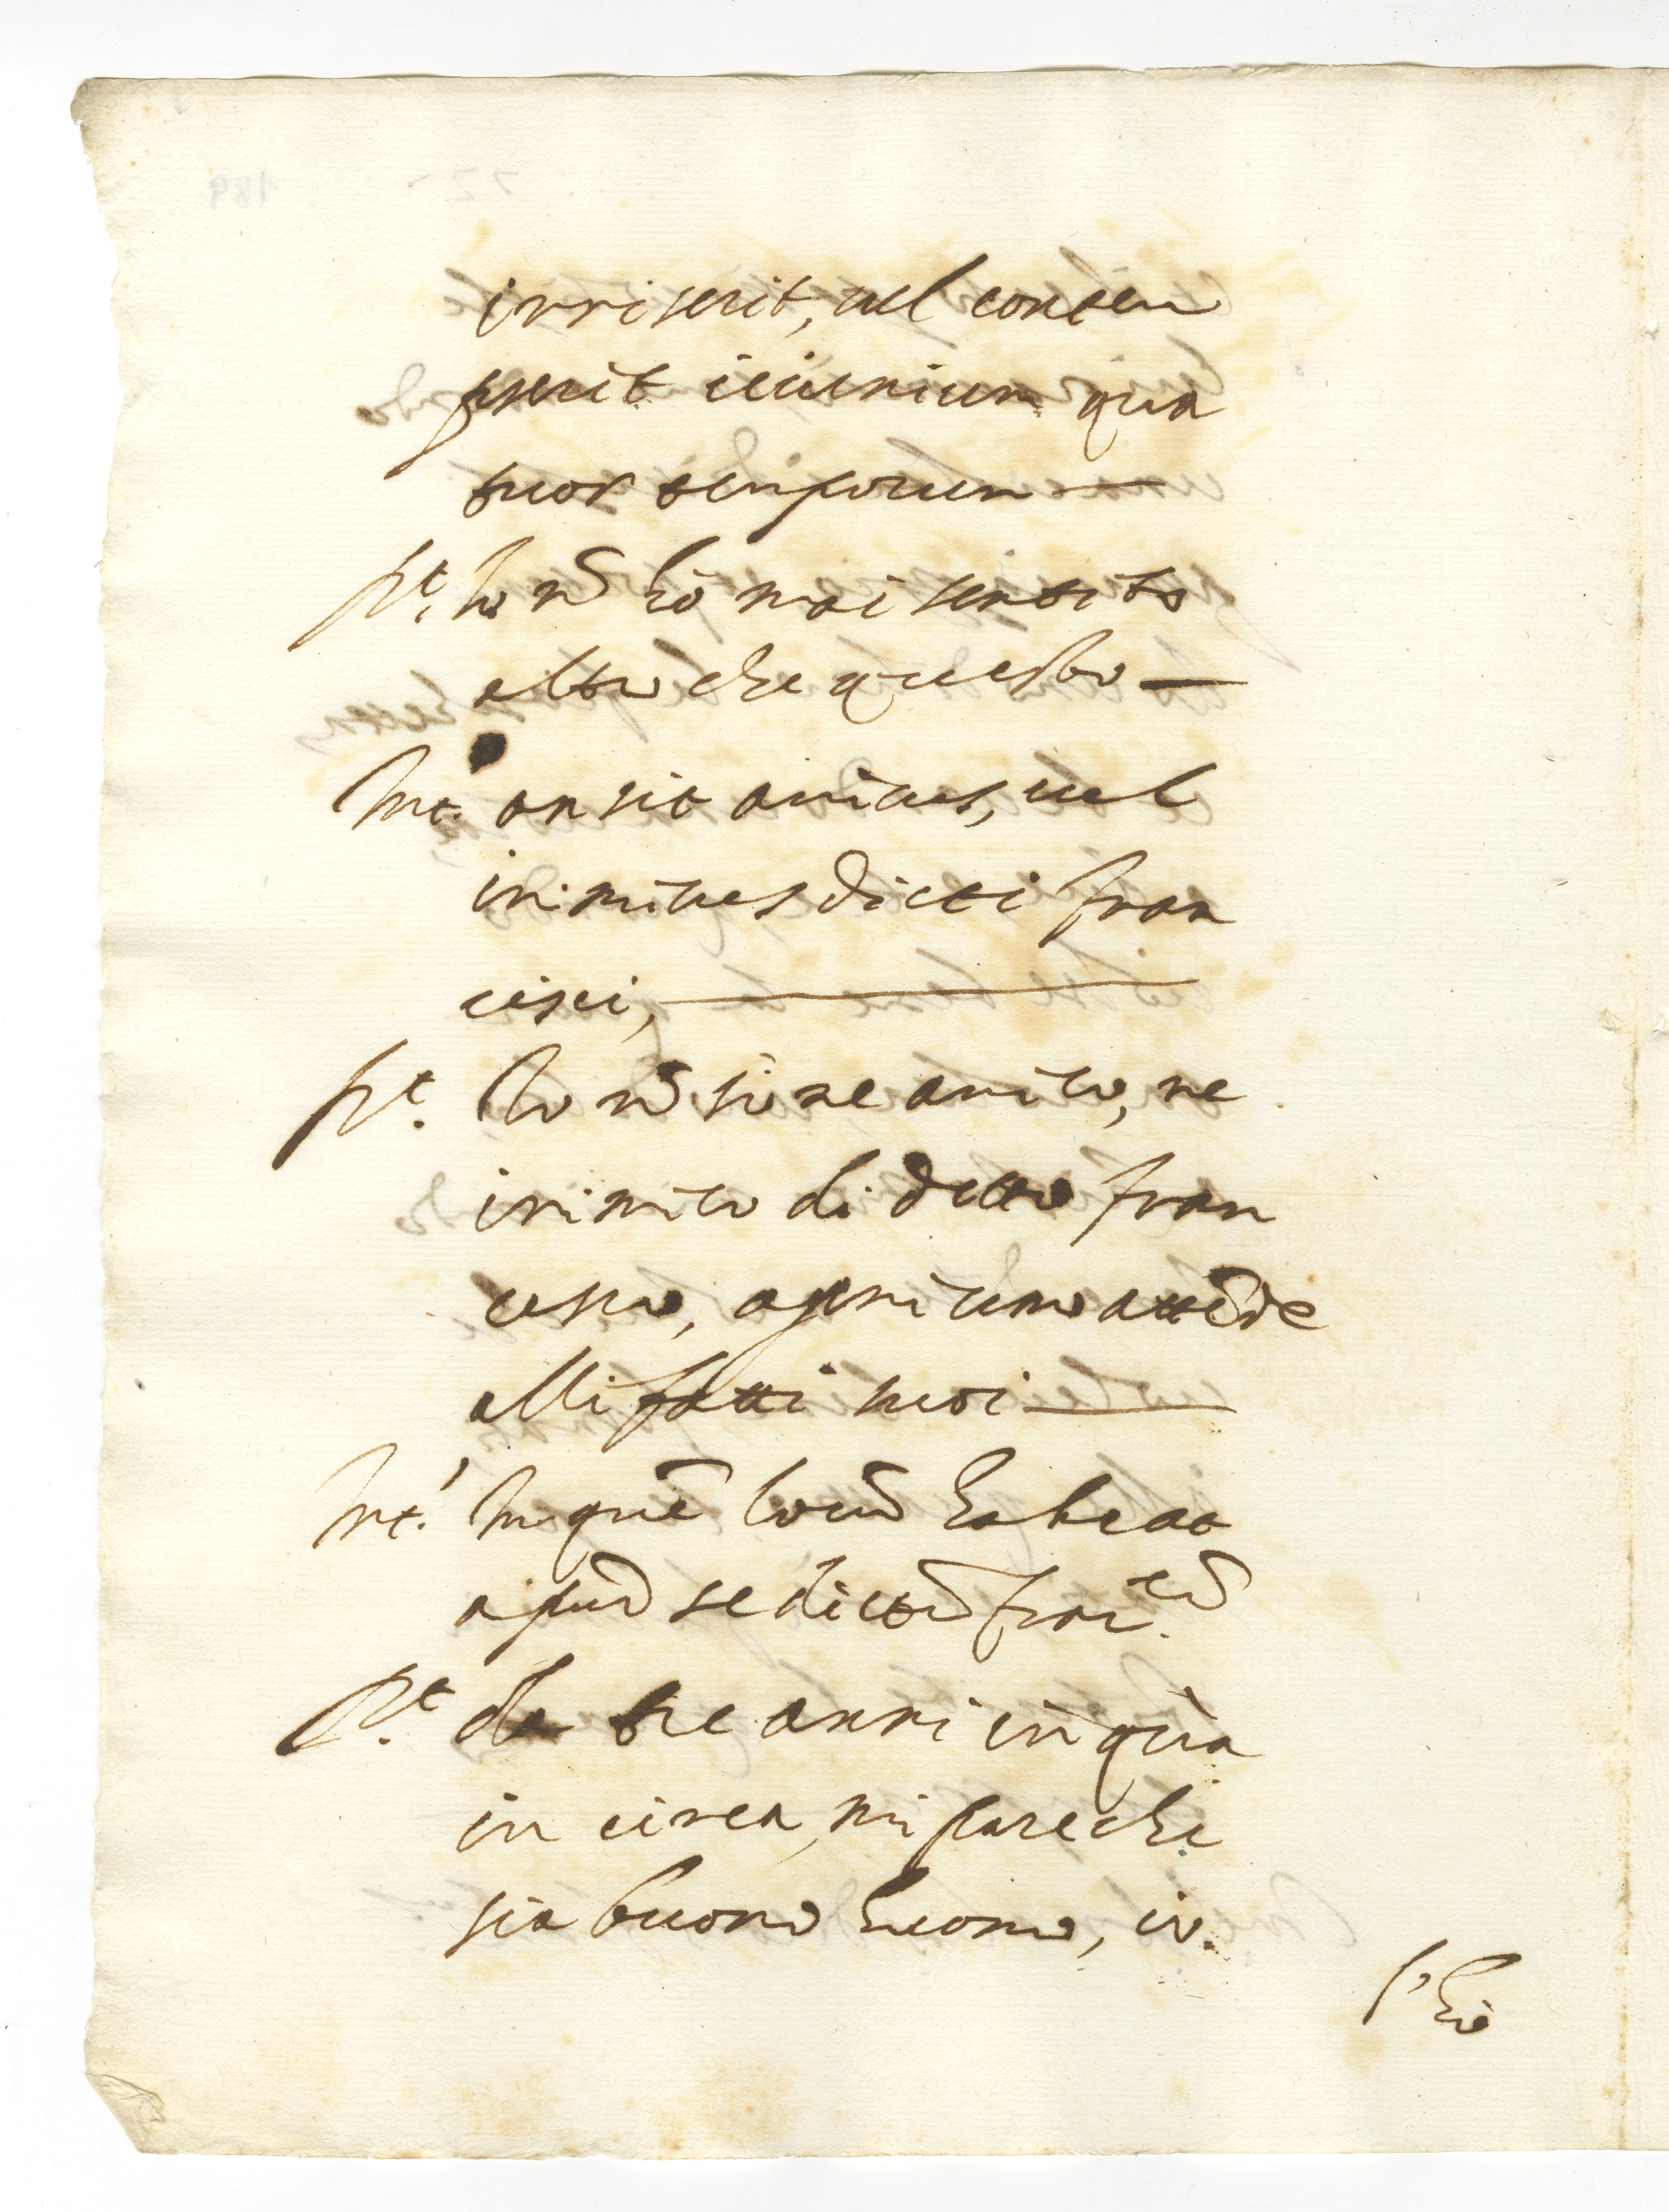 irriserit, vel contem
pserit ieiunium qua
tuor temporum
Rt. Io nõ hò mai sentito
altro che questo
Int. an sit amicus, vel
inimicus dicti fran
cisci,
Rt. Io nõ sò ne amico, ne
inimico di detto fran
cesco, ogni uno attẽde
alli fatti suoi
Int. In quẽ locũ habeat
apud se dictũ franc.cũ
Rt. da tre anni in qua
in circa, mi pare che
sia buono huomo, io.
l'hò